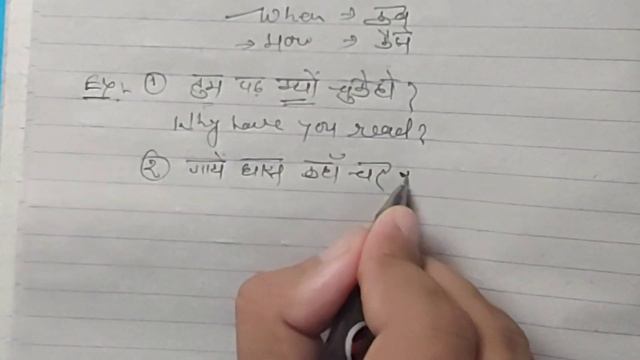 When → कब
→ How → कैसे
Exp. ① तुम पढ़ क्यों चुके हो?
Why have you read?
② गायें घास कहाँ चर